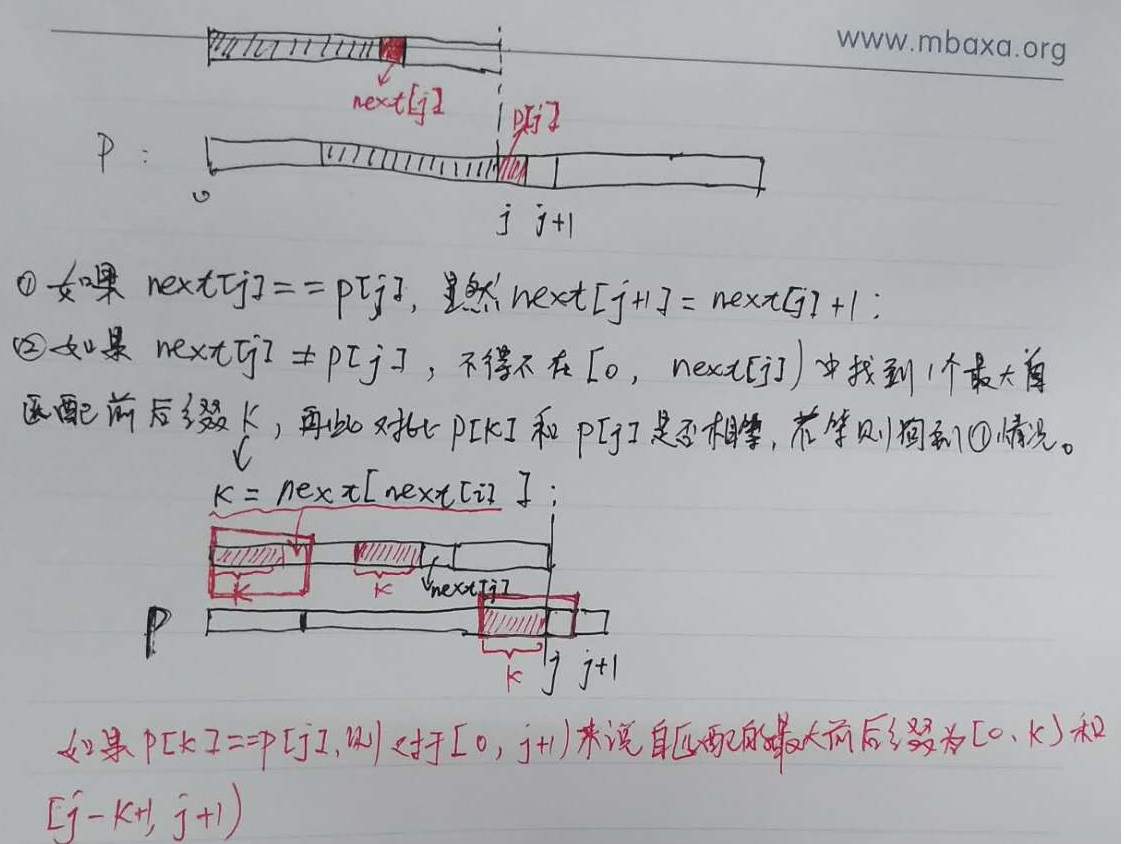 www.mbaxa.org
next[j]
p[j]
P:
0
j j+1
① 如果 next[j]==p[j], 显然 next[j+1]=next[j]+1;
② 如果 next[j]≠p[j], 不得不在[0, next[j])中找到1个最大自
匹配前后缀K, 再次对比 p[K] 和 p[j] 是否相等, 若等则回到①情况。
K = next[next[j]];
K K next[j]
P
K j j+1
如果 p[K]==p[j], 则对于[0, j+1)来说自匹配的最大前后缀为[0, K)和
[j-K+1, j+1)